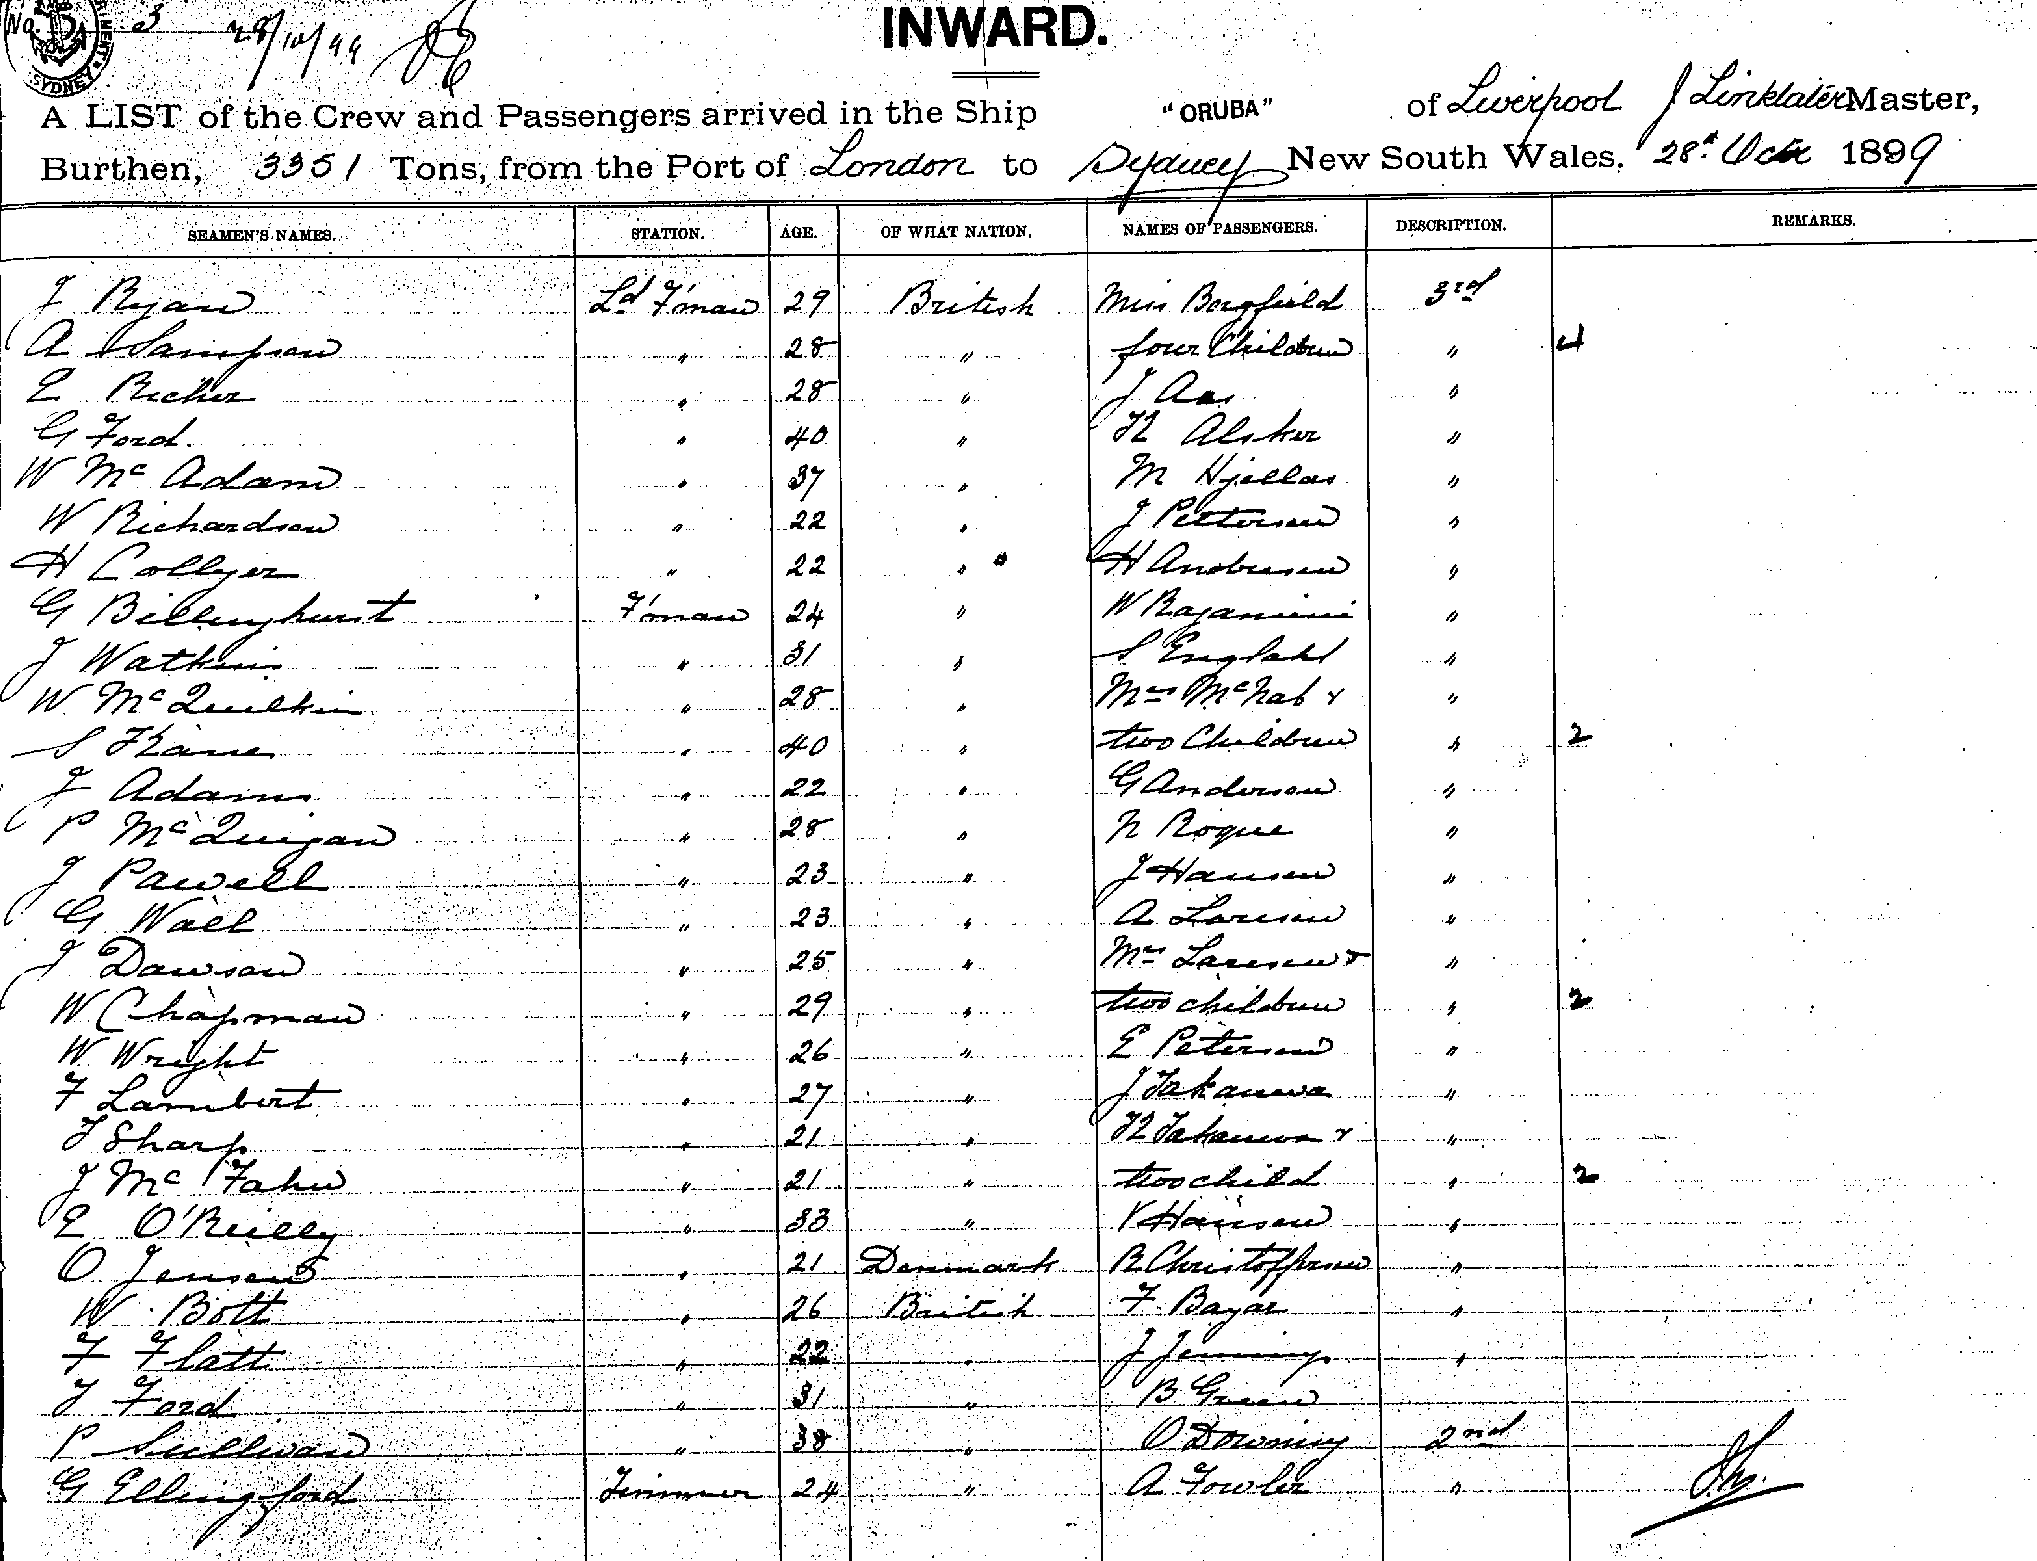 No. 3 28/10/99
INWARD.
SYDNEY
A LIST of the Crew and Passengers arrived in the Ship "ORUBA" of Liverpool J Linklater Master,
Burthen, 3351 Tons, from the Port of London to Sydney New South Wales, 28th Octr 1899
SEAMEN'S NAMES. STATION. AGE. OF WHAT NATION. NAMES OF PASSENGERS. DESCRIPTION. REMARKS.
J Ryan Ld F'man 29 British Miss Bergfield 3rd
A Sampson " 28 " four Children " 4
E Richer " 28 " J Aas "
G Ford " 40 " K Alsker "
W McAdam " 37 " M Hjellas "
W Richardson " 22 " J Pettersen "
H Collyer " 22 " H Andresen "
G Billinghurst F'man 24 " W "
J Watkins " 31 " S England "
W McQuilkin " 28 " Mrs McNab & "
S Kane " 40 " two Children " 2
J Adams " 22 " G Anderson "
P McQuigan " 28 " N Rogue "
J Pawell " 23 " J Hansen "
G Wall " 23 " A Larsen "
J Dawson " 25 " Mrs Larsen & "
W Chapman " 29 " two children " 2
W Wright " 26 " E Petersen "
F Lambert " 27 " J Takauwa "
T Sharp " 21 " K Takauwa & "
J McFahn " 21 " two child " 2
E O'Reilly " 33 " V Hansen "
O Jensen " 21 Denmark B Christoffersen "
W Bott " 26 British F Bayar "
F Flatt " 22 " J Jennings "
T Ford " 31 " B Green "
P Sullivan " 38 " O Downing 2nd
G Ellingford Trimmer 24 " A Fowler "